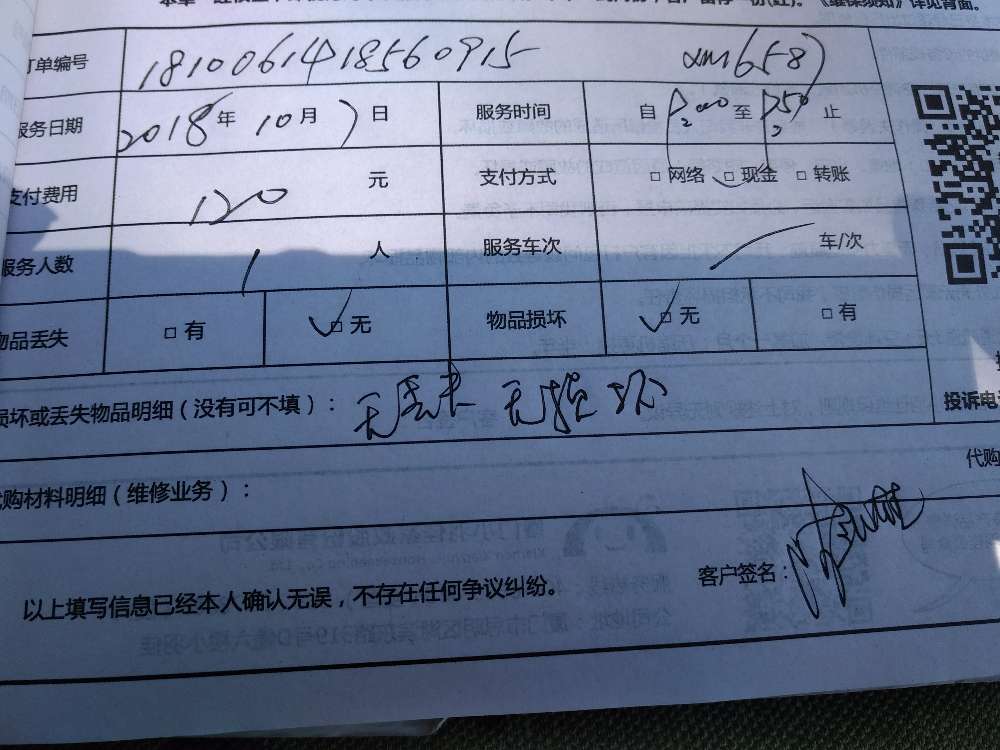 订单编号 1810061418560915 xm6587
服务日期 2018年10月7日 服务时间 自 至 止
支付费用 120 元 支付方式 □ 网络 □ 现金 □ 转账
服务人数 1 人 服务车次 车/次
物品丢失 □ 有 □ 无 物品损坏 □ 无 □ 有
损坏或丢失物品明细（没有可不填）： 无丢失 无损坏
投诉电
代购材料明细（维修业务）： 代购
以上填写信息已经本人确认无误，不存在任何争议纠纷。 客户签名：